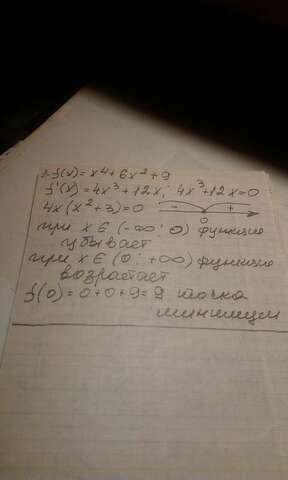 1. f(x)=x⁴+6x²+9
f'(x)=4x³+12x; 4x³+12x=0
4x(x²+3)=0 - +
0
при x∈(-∞; 0) функция
убывает
при x∈(0; +∞) функция
возрастает
f(0)=0+0+9=9 точка
минимум